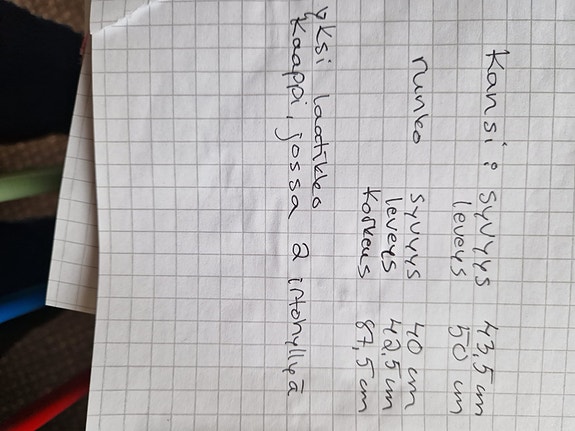 Kansi: syvyys 43,5 cm
leveys 50 cm
runko syvyys 40 cm
leveys 42,5 cm
korkeus 87,5 cm
yksi laatikko
kaappi, jossa 2 irtohyllyä